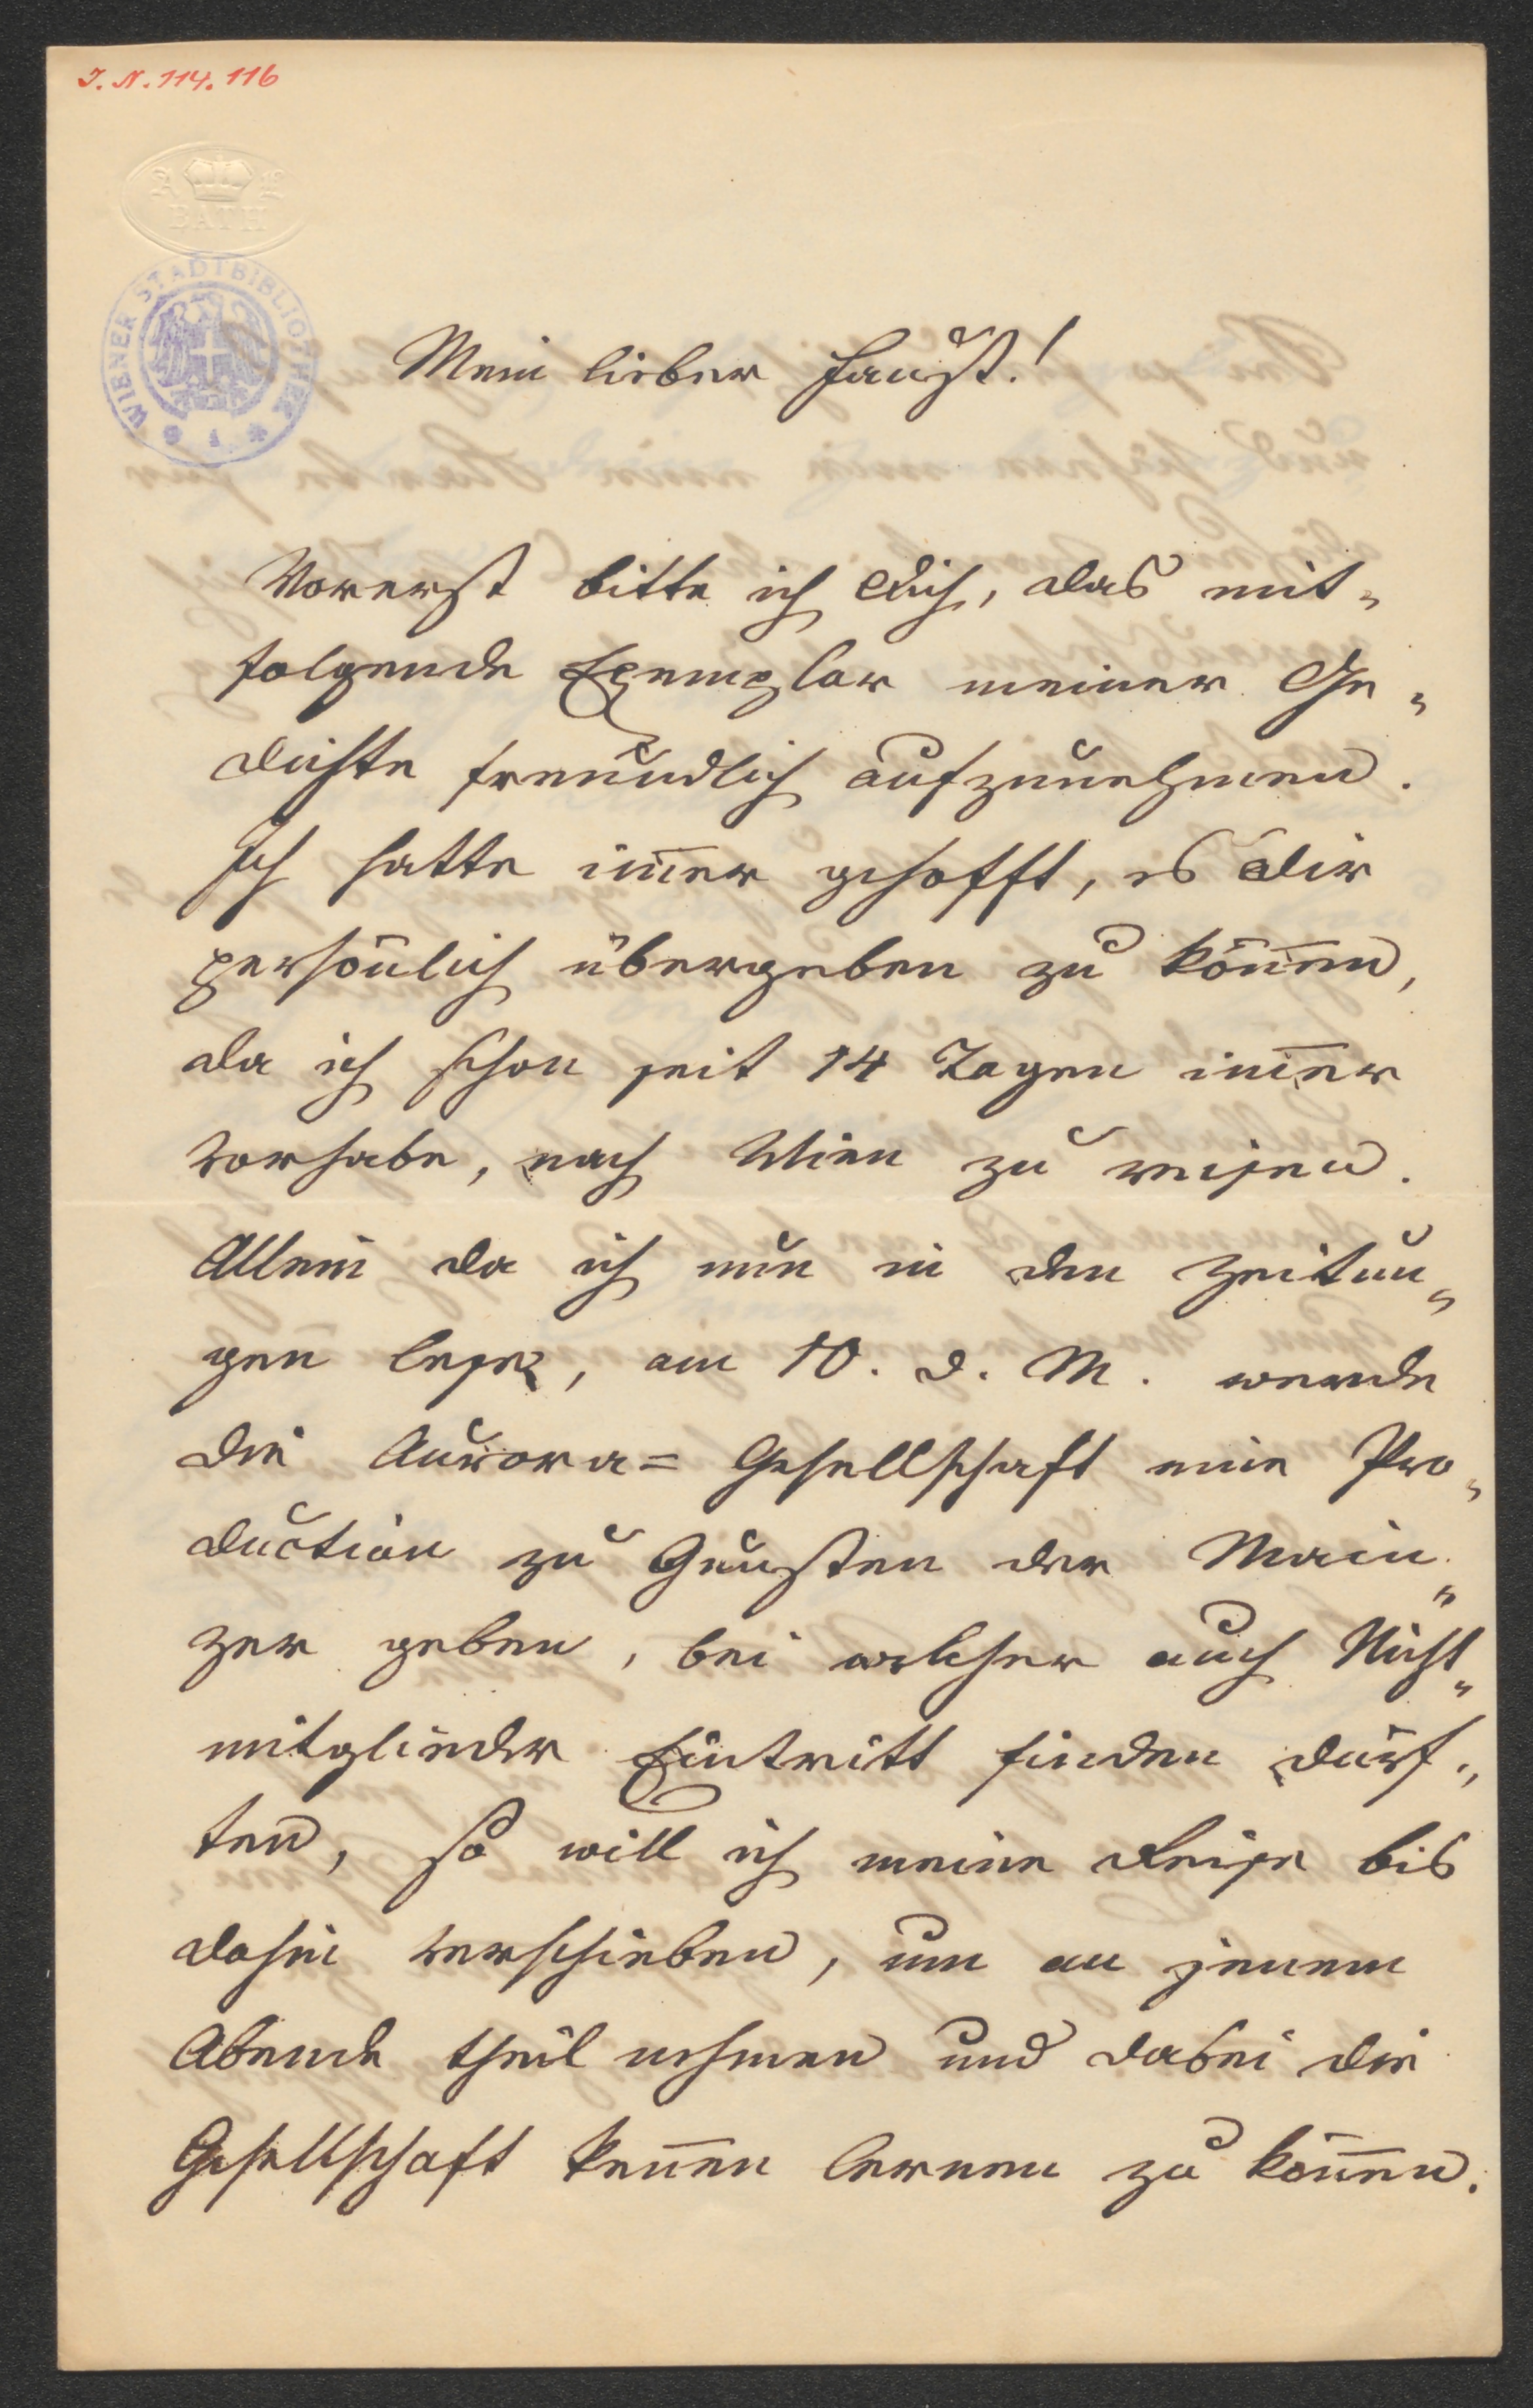 J. N. 114.116
BATH
WIENER STADTBIBLIOTHEK
Mein lieber Faust!
Vorerst bitte ich Dich, das mit„
folgende Exemplar meiner Ge„
dichte freundlich aufzunehmen.
Ich hatte im̅er gehofft, es Dir
persönlich übergeben zu kön̅en,
da ich schon seit 14 Tagen im̅er
vorhabe, nach Wien zu reisen.
Allein da ich nun in den Zeitun„
gen lese, am 10. d. M. werde
die Aurora= Gesellschaft eine Pro„
duction zu Gunsten der Main„
zer geben, bei welcher auch Nicht„
mitglieder Eintritt finden dürf„
ten, so will ich meine Reise bis
dahin verschieben, um an jenem
Abende theil nehmen und dabei die
Gesellschaft ken̅en lernen zu kön̅en.